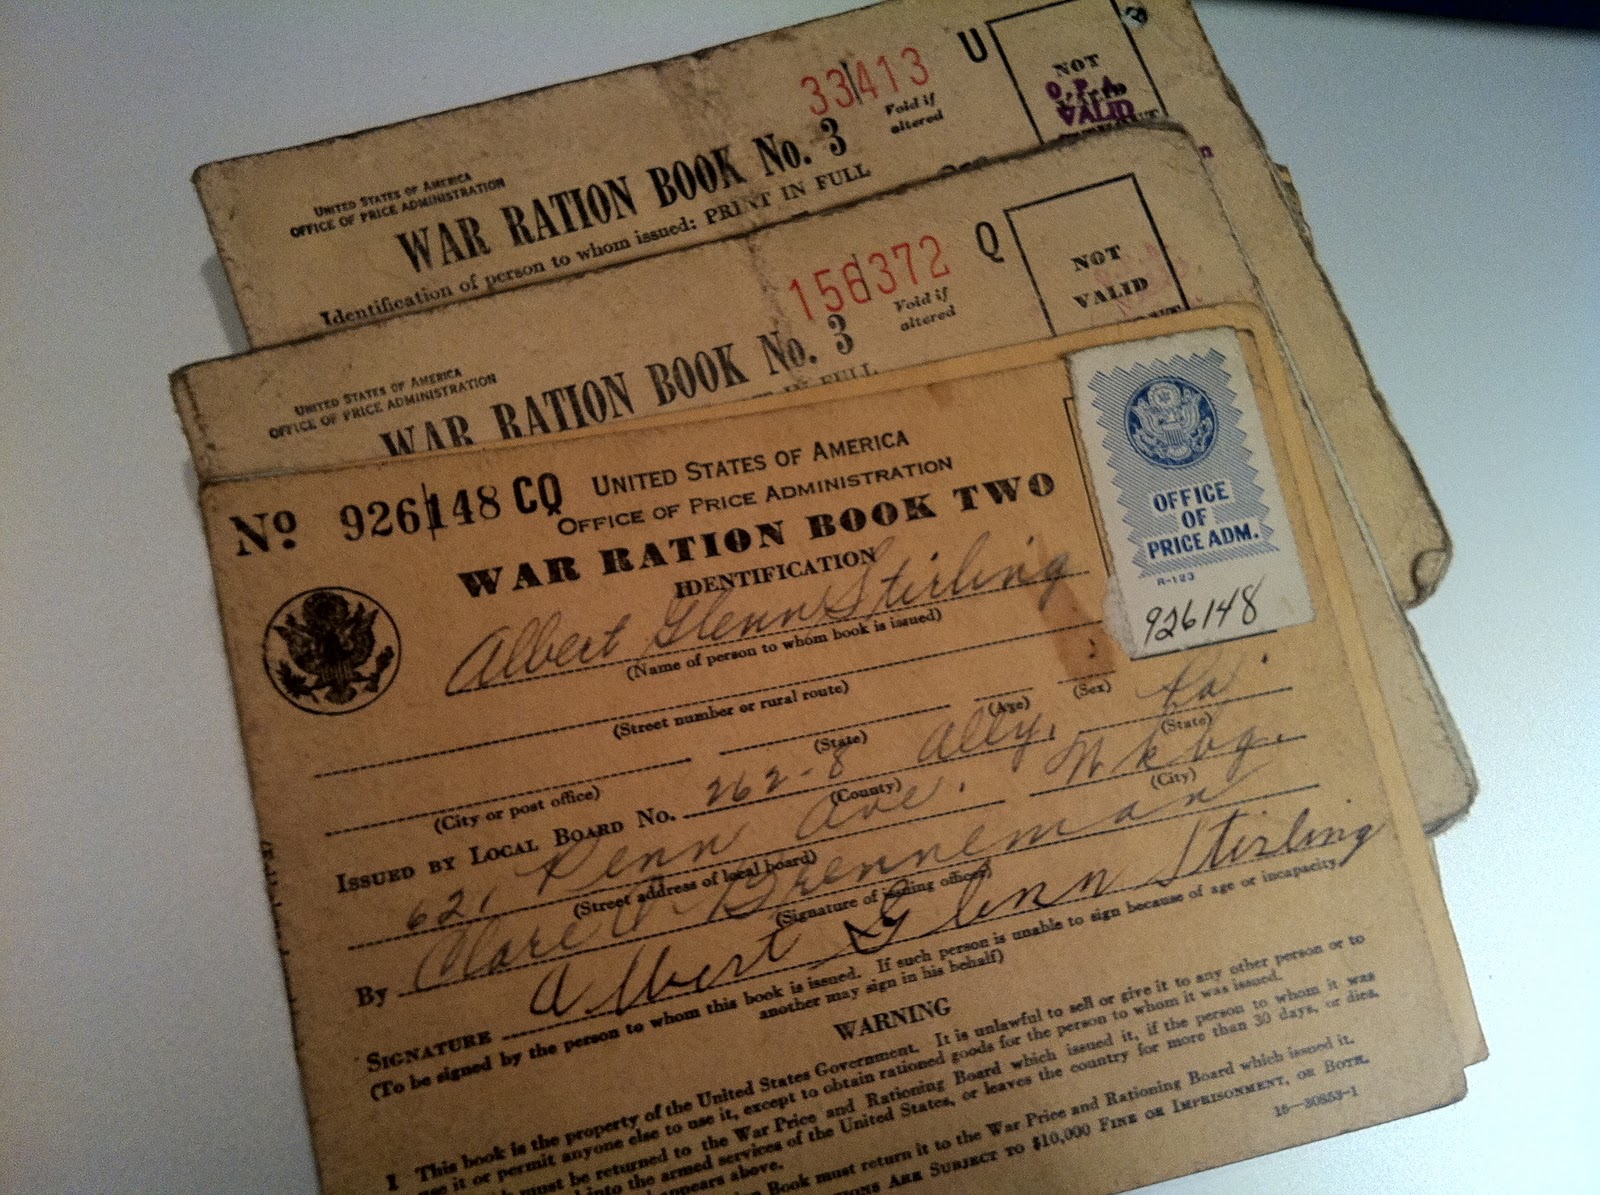 33413
Void if
altered
U
NOT
VALID
O.P.A.
VALID
UNITED STATES OF AMERICA
OFFICE OF PRICE ADMINISTRATION
WAR RATION BOOK No. 3
Identification of person to whom issued: PRINT IN FULL
156372
Void if
altered
Q
NOT
VALID
UNITED STATES OF AMERICA
OFFICE OF PRICE ADMINISTRATION
WAR RATION BOOK No. 3
IN FULL
No 926148 CQ
UNITED STATES OF AMERICA
OFFICE OF PRICE ADMINISTRATION
WAR RATION BOOK TWO
IDENTIFICATION
OFFICE
OF
PRICE ADM.
R-123
926148
Albert Glenn Stirling
(Name of person to whom book is issued)
(Street number or rural route)
(City or post office) (State) (Age) (Sex)
ISSUED BY LOCAL BOARD No. 262-8 Ally. Pa.
(County) (State)
621 Penn Ave. Wkbg.
(Street address of local board) (City)
By Clare Brenneman
(Signature of issuing officer)
SIGNATURE Albert Glenn Stirling
(To be signed by the person to whom this book is issued. If such person is unable to sign because of age or incapacity,
another may sign in his behalf)
WARNING
1 This book is the property of the United States Government. It is unlawful to sell or give it to any other person or to
use it or permit anyone else to use it, except to obtain rationed goods for the person to whom it was issued.
must be returned to the War Price and Rationing Board which issued it, if the person to whom it was
into the armed services of the United States, or leaves the country for more than 30 days, or dies.
appears above.
Book must return it to the War Price and Rationing Board which issued it.
ARE SUBJECT TO $10,000 FINE OR IMPRISONMENT, OR BOTH.
16—30853-1